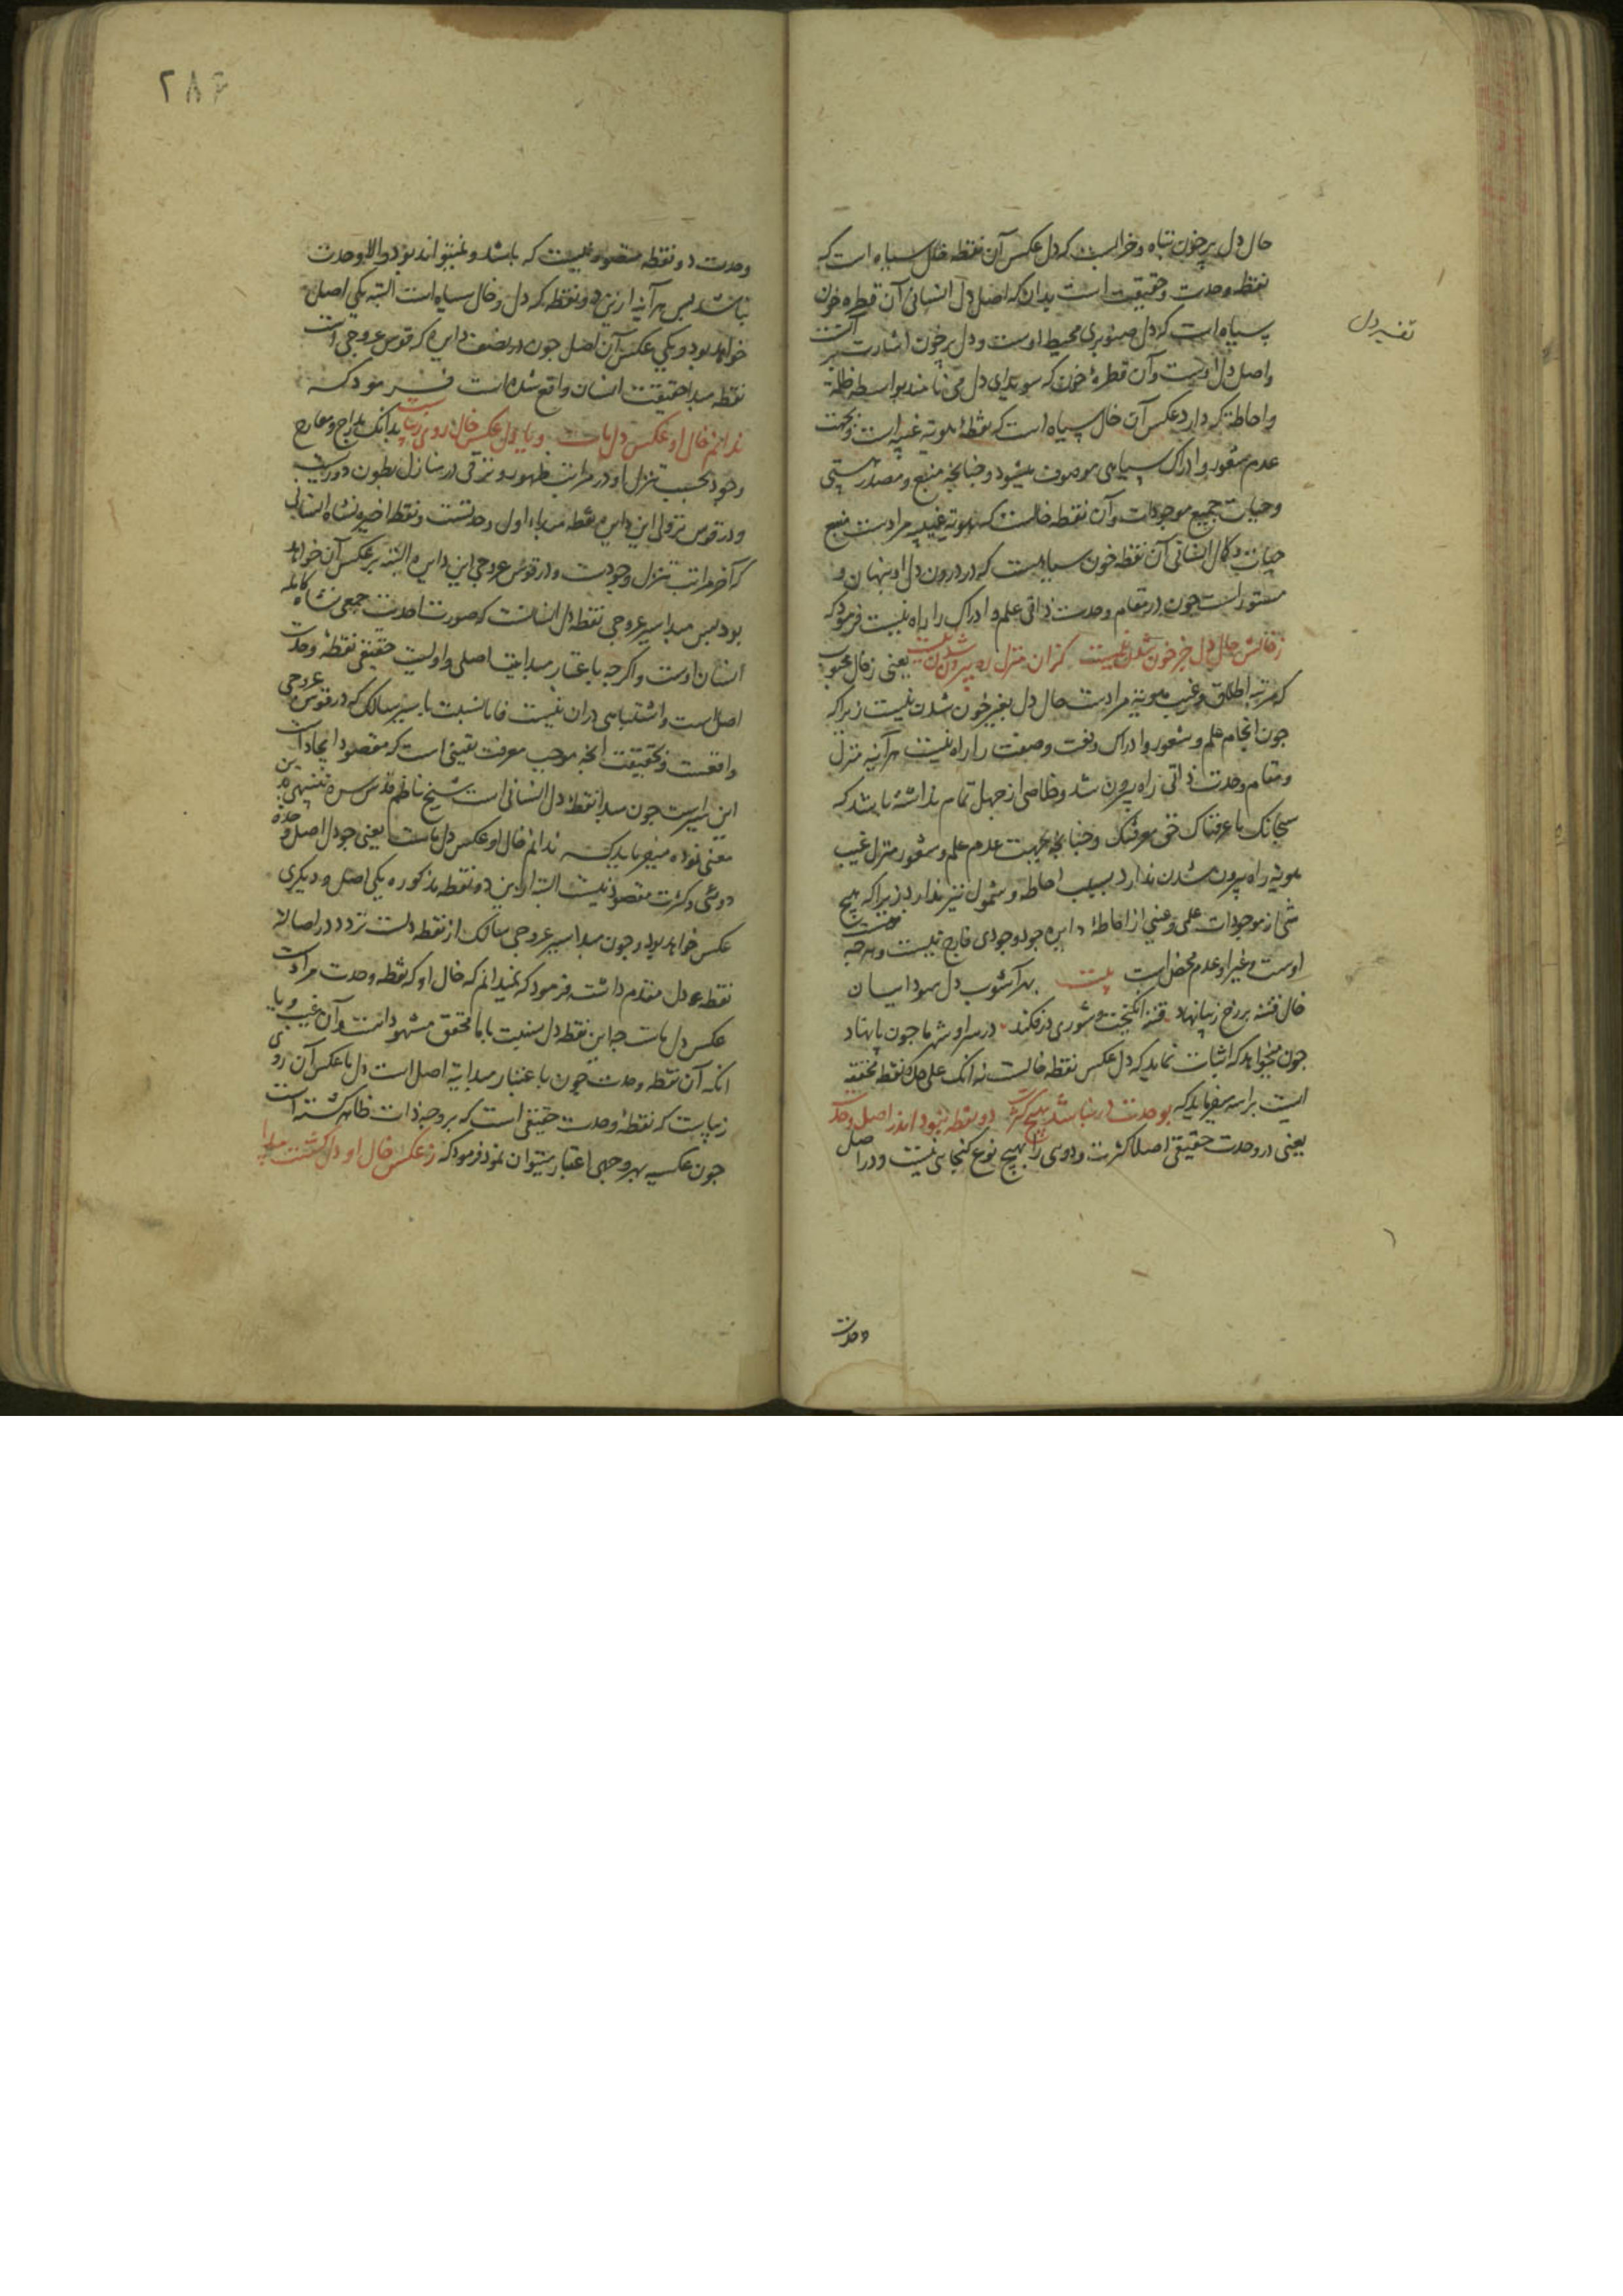 حال دل پر خون تباه و خرابست که دل عکس آن نقطه خال سیاه است که
نقطه وحدت و حقیقت است بدان که اصل دل انسانی آن قطره خون
سیاه است که دل صنوبری محیط اوست و دل پر خون اشارت بر آنست
واصل دل اوست و آن قطرهٔ خون که سویدای دل می نامند بواسطه ظلمة
و احاطتی که دارد عکس آن خال سیاه است که نقطهٔ هویة غیبیه است و بجهت
عدم شعور و ادراک سیاهی موصوف میشود و چنانچه منبع و مصدر هستی
و حیات جمیع موجودات آن نقطه خالست که هویة غیبیه مرادست منبع
حیات و کمال انسانی آن نقطه خون سیاهست که در درون دل او پنهان و
مستور است چون در مقام وحدت ذاتی علم و ادراک را راه نیست فرمود که
ز خالش حال دل جز خون شدن نیست کزان منزل ره بیرون شدن نیست یعنی ز خال محبوب
که مرتبه اطلاق و غیب هویة مرادست حال دل بغیر خون شدن نیست زیرا که
چون انجا علم و شعور و ادراک و نعت و صفت را راه نیست هر آینه منزل
و مقام وحدت ذاتی راه بیرون شد و خلاصی از جهل تمام نداشته باشد که
سبحانک ما عرفناک حق معرفتک و چنانچه بجهت عدم علم و شعور منزل غیب
هویة راه بیرون شدن ندارد بسبب احاطه و شمول نیز ندارد زیرا که هیچ
شی از موجودات علمی و عینی از احاطهٔ دایره وجودی خارج نیست و هر چه هست
اوست و غیر او عدم محض است بیت بهر آشوب دل سودائیان
خال فتنه بر رخ زیبا نهاد فتنه انگیخت و شوری در فکند در سرا و شهر ما چون پا نهاد
چون میخواهد که اثبات نماید که دل عکس نقطه خالست نه آنک علی حده نقطه محققه
ایست براسه میفرماید که بوحدت در نباشد هیچ کثرت دو نقطه نبود اندر اصل وحدت
یعنی در وحدت حقیقی اصلا کثرت و دوی را بهیچ نوع گنجایی نیست و در اصل
وحدت
تفسیر دل
۲۸۶
وحدت دو نقطه متصور نیست که باشد و نمیتواند بود و الا وحدت
نباشد پس هر آینه ازین دو نقطه که دل و خال سیاه است البته یکی اصل
خواهد بود و یکی عکس آن اصل چون در نصف دایره که قوس عروجی است
نقطه مبدا حقیقت انسان واقع شده است فرمود که
ندانم خال او عکس دل ماست و یا دل عکس خال روی زیباست بدانک مدارج و معارج
وجود بحسب تنزل او در مراتب ظهور و ترقی در منازل بطون دوریست
و در قوس نزولی این دایره نقطه مبداء اول وحدتست و نقطه اخیره نشاه انسانی
که آخر مراتب تنزل وجودست و در قوس عروجی این دایره البته بر عکس آن خواهد
بود پس مبدا سیر عروجی نقطه دل انسانست که صورت احدیت جمعی نشاه کامله
انسان اوست و اگر چه باعتبار مبدائیت اصلی و اولیت حقیقی نقطهٔ وحدت
اصل است و اشتباهی دران نیست فاما نسبت با سیر سالک که در قوس عروجی
واقعست و بحقیقت انچه موجب معرفت یقینی است که مقصود ایجاد است
این سیرست چون مبدا نقطهٔ دل انسانی است شیخ ناظم قدس سره تنبیه برین
معنی نموده میفرماید که ندانم خال او عکس دل ماست یعنی چو در اصل وحدة
دوئی و کثرت متصور نیست البته ازین دو نقطه مذکوره یکی اصل و دیگری
عکس خواهد بود و چون مبدا سیر عروجی سالک از نقطه دلست تردد در اصالة
نقطهٔ دل مقدم داشته فرمود که نمیدانم که خال او که نقطه وحدت مرادست
عکس دل ماست چه این نقطه دل نسبت با ما محقق مشهود است و آن غیب و یا
انکه آن نقطه وحدت چون باعتبار مبدایة اصل است دل ما عکس آن روی
زیباست که نقطهٔ وحدت حقیقی است که بر وجه ذات ظاهر گشته است
چون عکسیه بهر وجهی اعتبار میتوان نمود فرمود که ز عکس خال او دل گشت پیدا